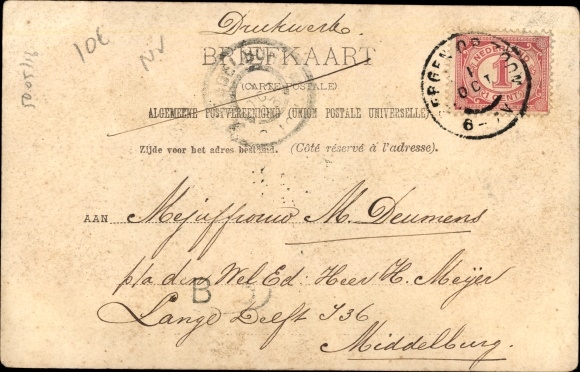 Drukwerk
10E
BRIEFKAART
(CARTE POSTALE)
ALGEMEENE POSTVEREENIGING (UNION POSTALE UNIVERSELLE)
Zijde voor het adres bestemd. (Côté réservé à l'adresse).
AAN Mejuffrouw M. Deumens
p/a den Wel Ed: Heer H. Meijer
Lange Delft I36
Middelburg.
B
NEDERLAND
1
CENT
BERGEN OP ZOOM
1
OCT